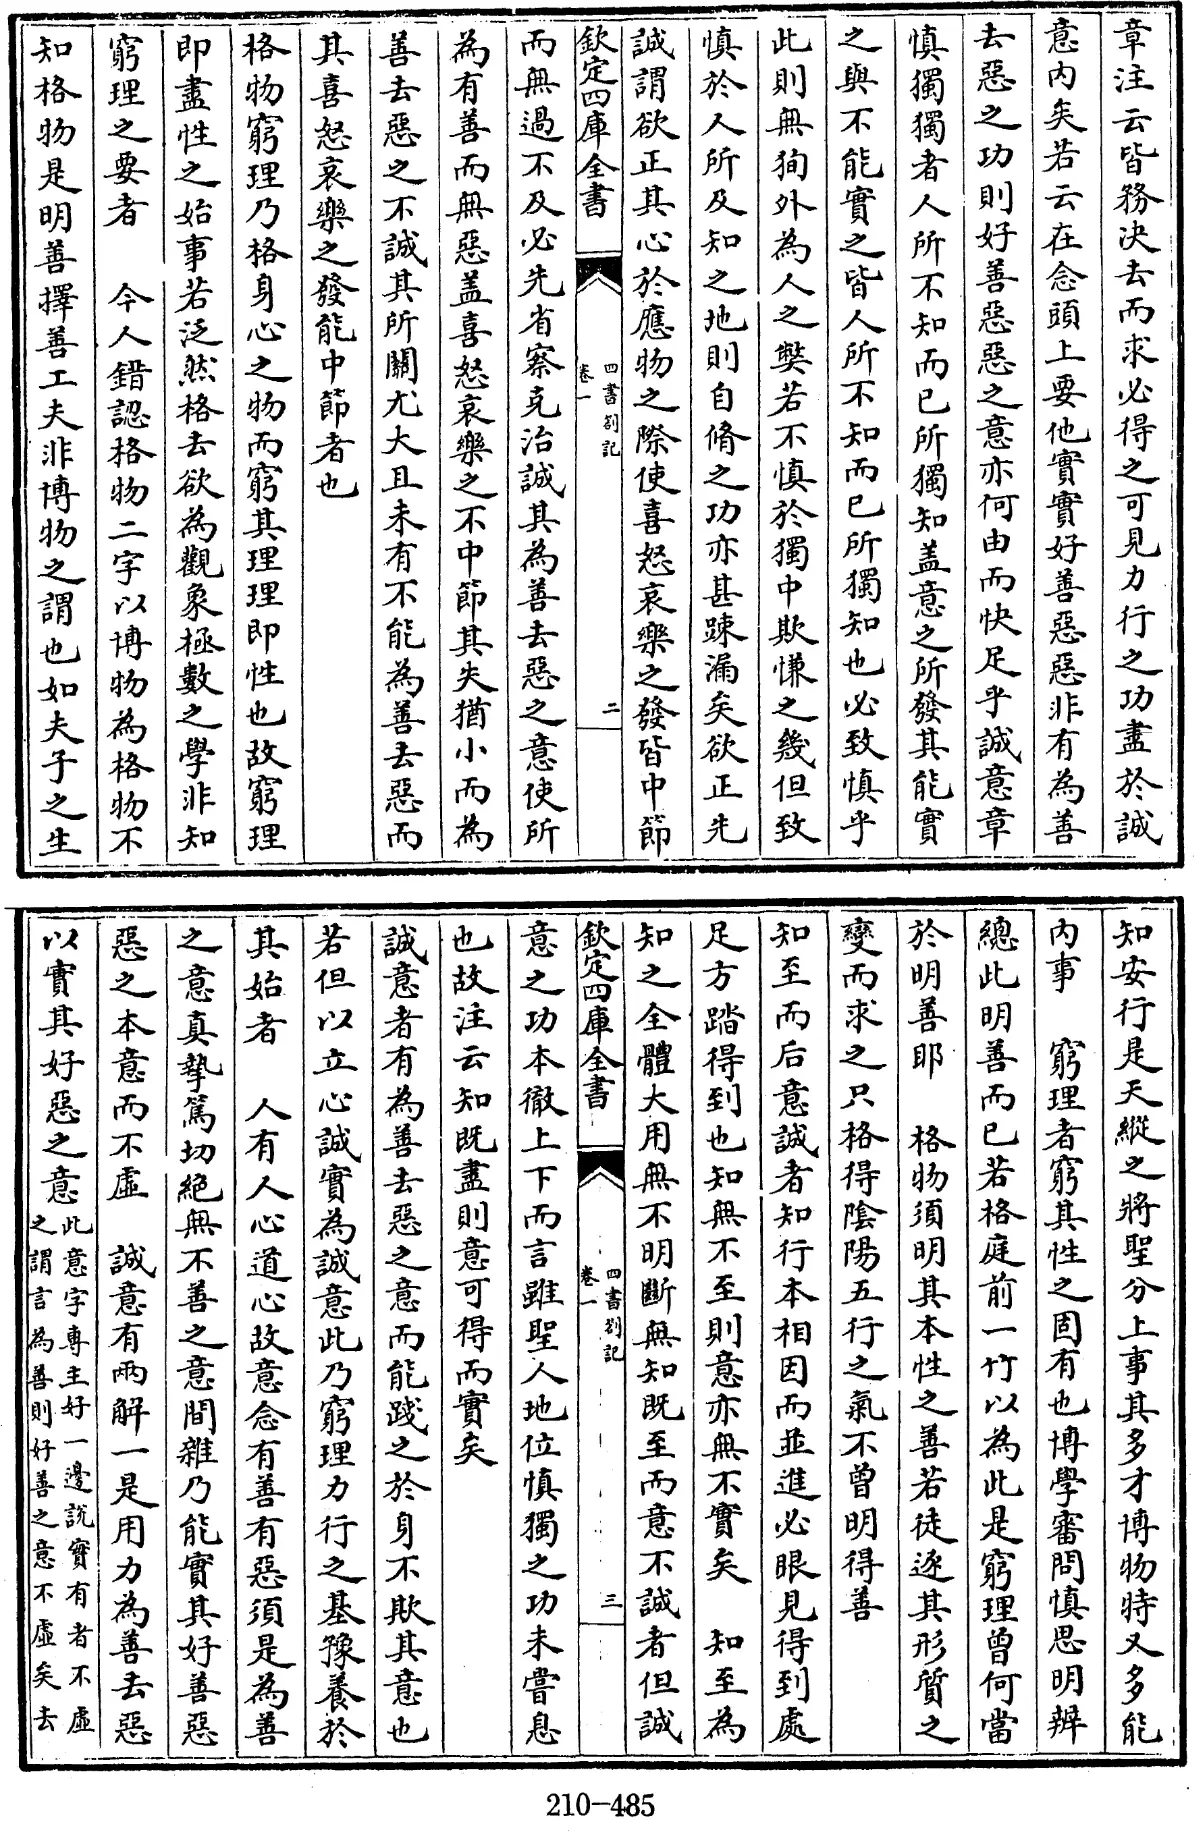 章注云皆務决去而求必得之可見力行之功盡於誠
意内矣若云在念頭上要他實實好善惡惡非有為善
去惡之功則好善惡惡之意亦何由而快足乎誠意章
慎獨獨者人所不知而已所獨知盖意之所發其能實
之與不能實之皆人所不知而已所獨知也必致慎乎
此則無狥外為人之獘若不慎於獨中欺慊之幾但致
慎於人所及知之地則自脩之功亦甚踈漏矣欲正先
誠謂欲正其心於應物之際使喜怒哀樂之發皆中節
欽定四庫全書
四書劄記
卷一
二
而無過不及必先省察克治誠其為善去惡之意使所
為有善而無惡盖喜怒哀樂之不中節其失猶小而為
善去惡之不誠其所關尤大且未有不能為善去惡而
其喜怒哀樂之發能中節者也
格物窮理乃格身心之物而窮其理理即性也故窮理
即盡性之始事若泛然格去欲為觀象極數之學非知
窮理之要者 今人錯認格物二字以博物為格物不
知格物是明善擇善工夫非博物之謂也如夫子之生
知安行是天縱之將聖分上事其多才博物特又多能
内事 窮理者窮其性之固有也博學審問慎思明辨
總此明善而已若格庭前一竹以為此是窮理曾何當
於明善耶 格物須明其本性之善若徒逐其形質之
變而求之只格得陰陽五行之氣不曾明得善
知至而后意誠者知行本相因而並進必眼見得到處
足方踏得到也知無不至則意亦無不實矣 知至為
知之全體大用無不明斷無知既至而意不誠者但誠
欽定四庫全書
四書劄記
卷一
三
意之功本徹上下而言雖聖人地位慎獨之功未嘗息
也故注云知既盡則意可得而實矣
誠意者有為善去惡之意而能踐之於身不欺其意也
若但以立心誠實為誠意此乃窮理力行之基豫養於
其始者 人有人心道心故意念有善有惡須是為善
之意真摯篤切絶無不善之意間雜乃能實其好善惡
惡之本意而不虛 誠意有兩解一是用力為善去惡
以實其好惡之意此意字專主好一邊説實有者不虛
之謂言為善則好善之意不虛矣去
210-485